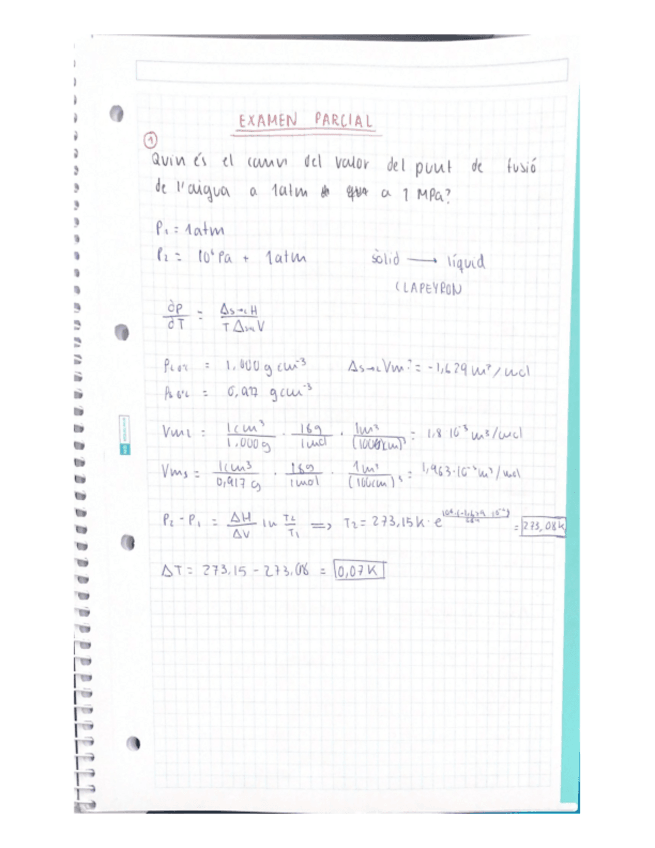 EXAMEN PARCIAL
1
Quin és el canvi del valor del punt de fusió
de l'aigua a 1atm a 1 MPa?
P₁ = 1atm
P₂ = 10⁶ Pa + 1atm sòlid → líquid
CLAPEYRON
∂P/∂T = Δs→L H / T Δ V
= 1,000 g cm⁻³ Δs→L Vm = -1,629 m³/mol
= 0,917 g cm⁻³
VmL = 1cm³/1,000g · 18g/1mol · 1m³/(100cm)³ = 1,8 10⁻⁵ m³/mol
Vms = 1cm³/0,917 g · 18g/1mol · 1m³/(100cm)³ = 1,963·10⁻⁵ m³/mol
P₂ - P₁ = ΔH/ΔV ln T₂/T₁ => T₂ = 273,15K · e = 273,08K
ΔT = 273,15 - 273,08 = 0,07K